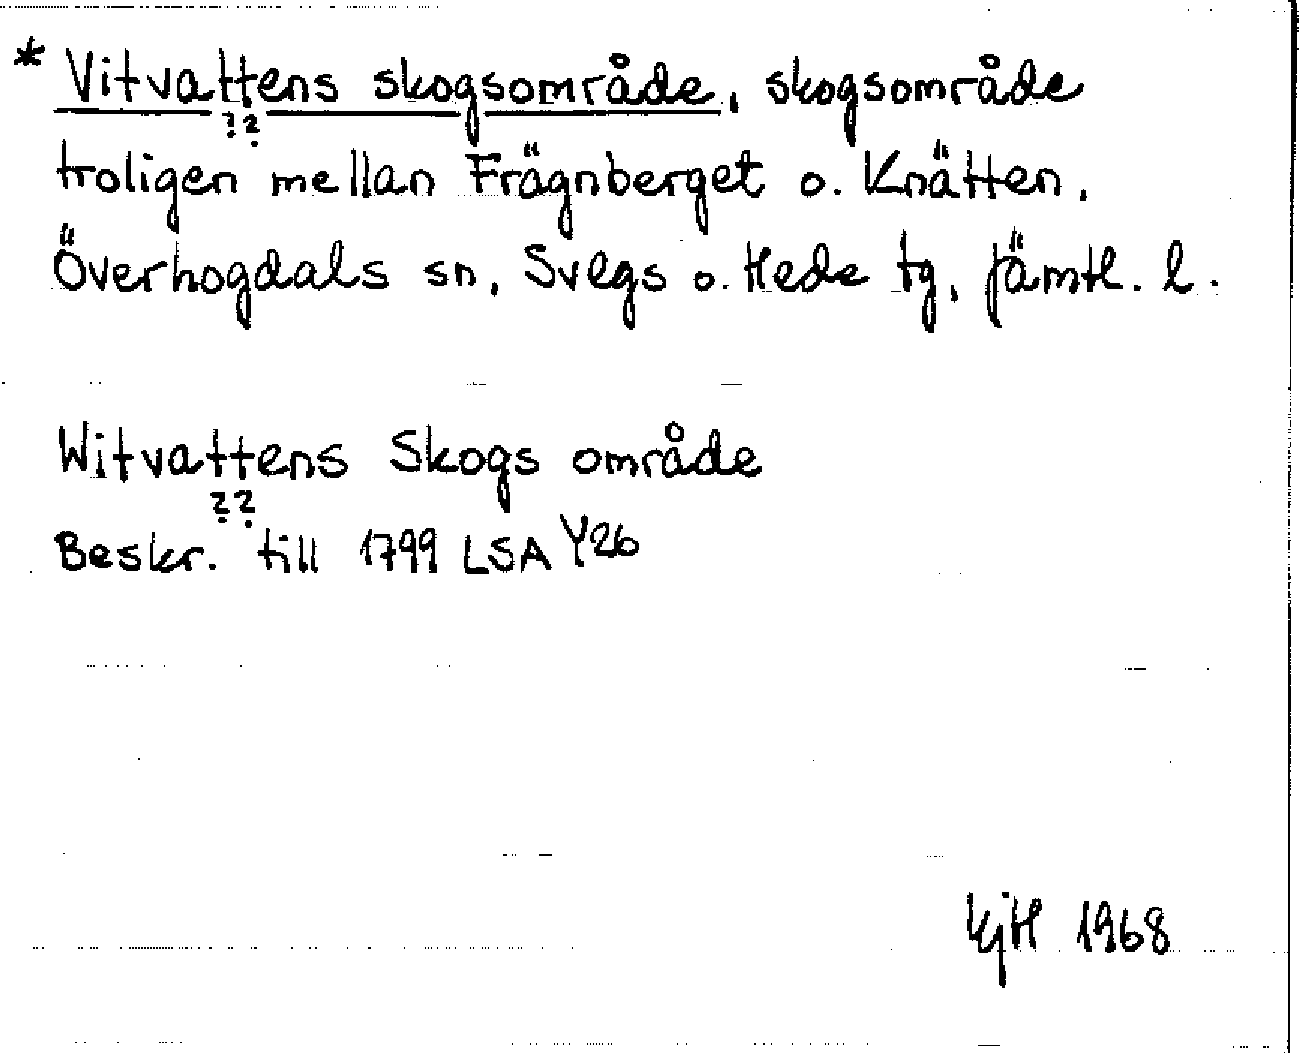 * Vitvattens skogsområde, skogsområde
??
troligen mellan Frägnberget o. Knätten,
Överhogdals sn, Svegs o. Hede tg, Jämtl. l.
Witvattens Skogs område
??
Beskr. till 1799 LSA Y26
KjH 1968